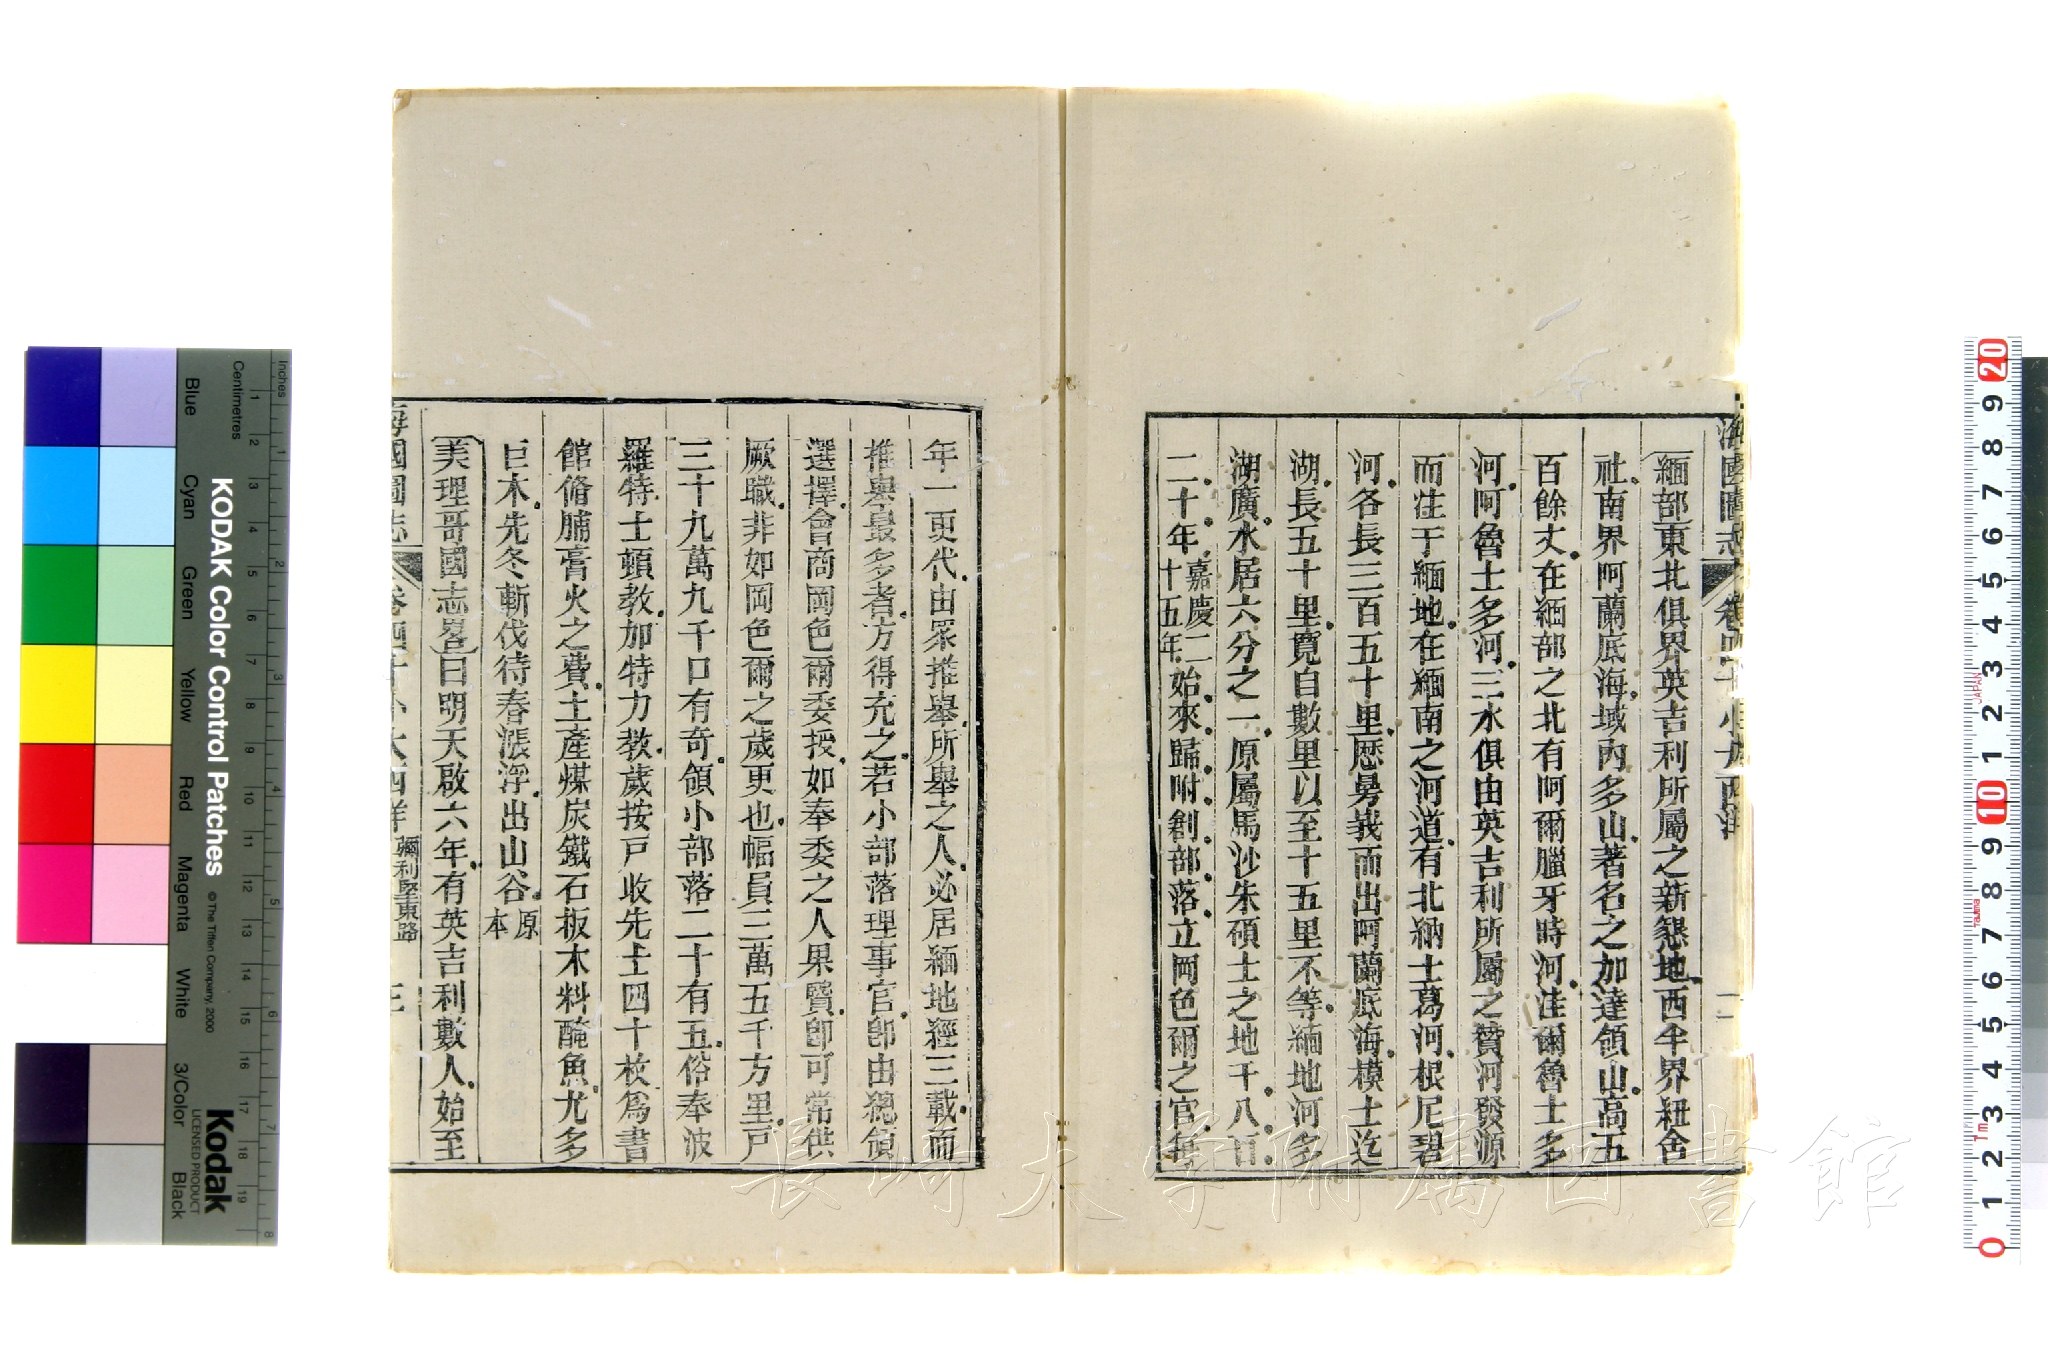 緬部東北俱界英吉利所屬之新懇地西牟界紐舍
社南界阿蘭底海域內多山著名之加達領山高五
百餘丈在緬部之北有阿爾臘牙時河洼爾魯士多
河阿魯士多河三水俱由英吉利所屬之贊河發源
而注于緬地在緬南之河道有北納士葛河根尼碧
河各長三百五十里歴勇峩而出阿蘭底海模士迄
湖長五十里寬自數里以至十五里不等緬地河多
湖廣水居六分之一原屬馬沙朱碩士之地千八百
二十年嘉慶二十五年始來歸附創部落立岡色爾之官每
年一更代由眾推舉所舉之人必居緬地經三載而
推舉最多者方得充之若小部落理事官卽由總領
選擇會商岡色爾委授如奉委之人果賢卽可常供
厥職非如岡色爾之歲更也幅員三萬五千方里戸
三十九萬九千口有奇領小部落二十有五俗奉波
羅特士頓教加特力教歲按戸收先士四十枚爲書
館脩脯膏火之費土產煤炭鐵石板木料醃魚尤多
巨木先冬斬伐待春漲浮出山谷原本
美理哥國志畧曰明天啟六年有英吉利數人始至
海國圖志 卷四十 小西洋 二
海國圖志 大西洋 彌利堅東路 三
KODAK Color Control Patches
© The Tiffen Company, 2000
Kodak
LICENSED PRODUCT
Inches
Centimetres
Blue
Cyan
Green
Yellow
Red
Magenta
White
3/Color
Black
長崎大学附属図書館